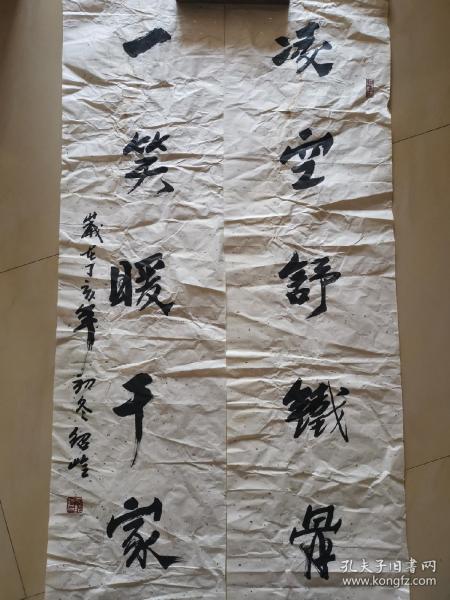 凌空舒鐵骨
一笑暖千家
歲在丁亥年初冬紹嶺
孔夫子旧书网
www.kongfz.com